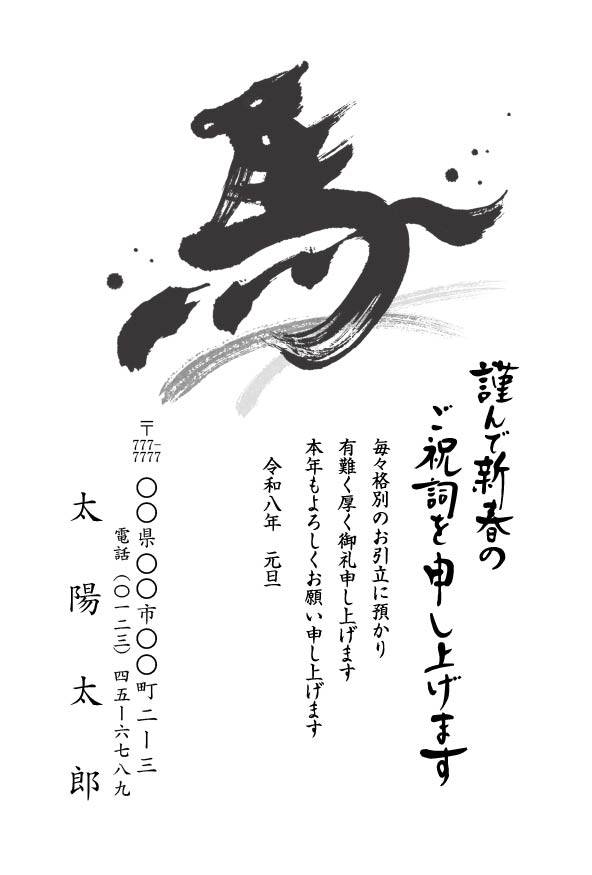 馬
謹んで新春の
ご祝詞を申し上げます
毎々格別のお引立に預かり
有難く厚く御礼申し上げます
本年もよろしくお願い申し上げます
令和八年　元旦
〒777-7777
〇〇県〇〇市〇〇町二ー三
電話（〇一二三）四五ー六七八九
太陽太郎